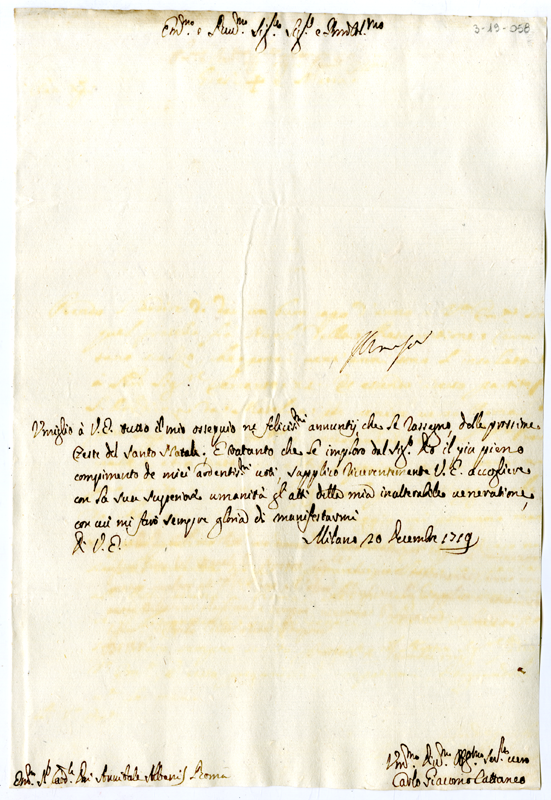 3-19-058
Em.mo e Rev.mo Sig.re Sig.re e Pron Col.mo
Umiglio à V.E. tutto il mio ossequio ne felicis.mi annuntij che Le rassegno delle prossime
Feste del Santo Natale. E trattanto che Le imploro dal Sig.r Dio il più pieno
compimento de miei ardentis.mi uoti, supplico riuerentemente V.E. accogliere
con la sua superiore umanità gl'atti della mia inalterabile ueneratione,
con cui mi farò sempre gloria di manifestarmi
Di V.E.
Milano 20 Decembre 1719
Em.o S.r Card.le Annibale Albani Roma
Um.mo Deu.mo Ser.re uero
Carlo Giacomo Cattaneo